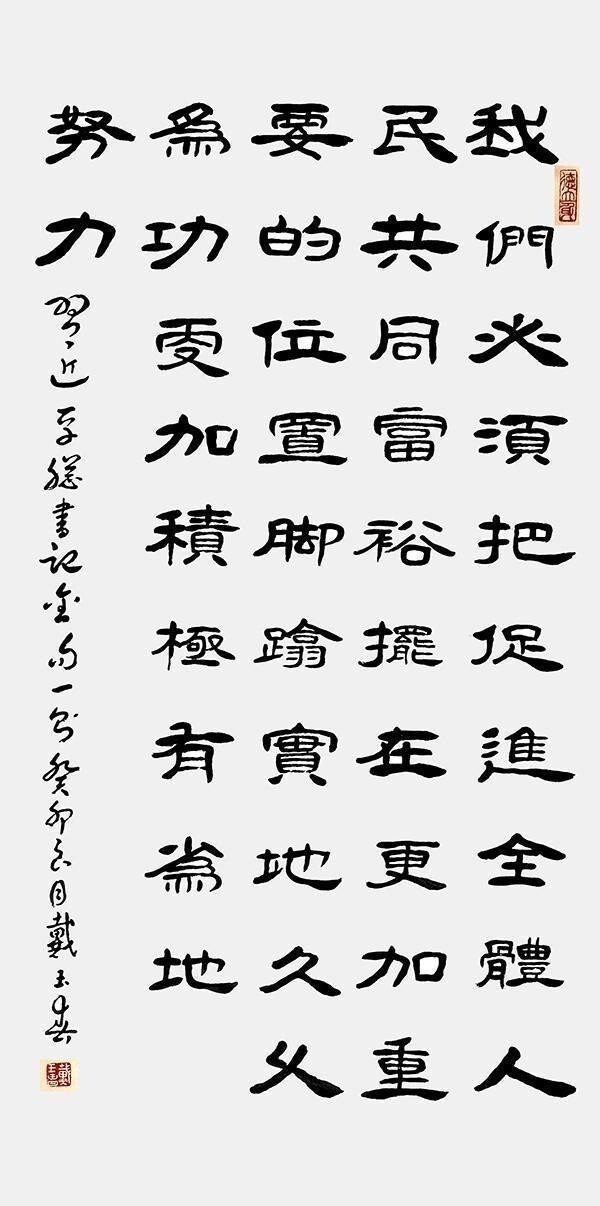 我們必須把促進全體人
民共同富裕擺在更加重
要的位置脚蹋實地久久
為功更加積極有為地
努力
習近平總書記金句一則癸卯月戴玉春